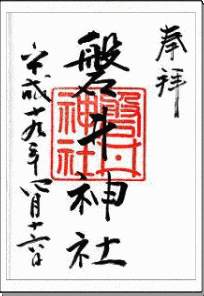 奉拝
磐井神社
磐井神社
平成十九年四月十六日